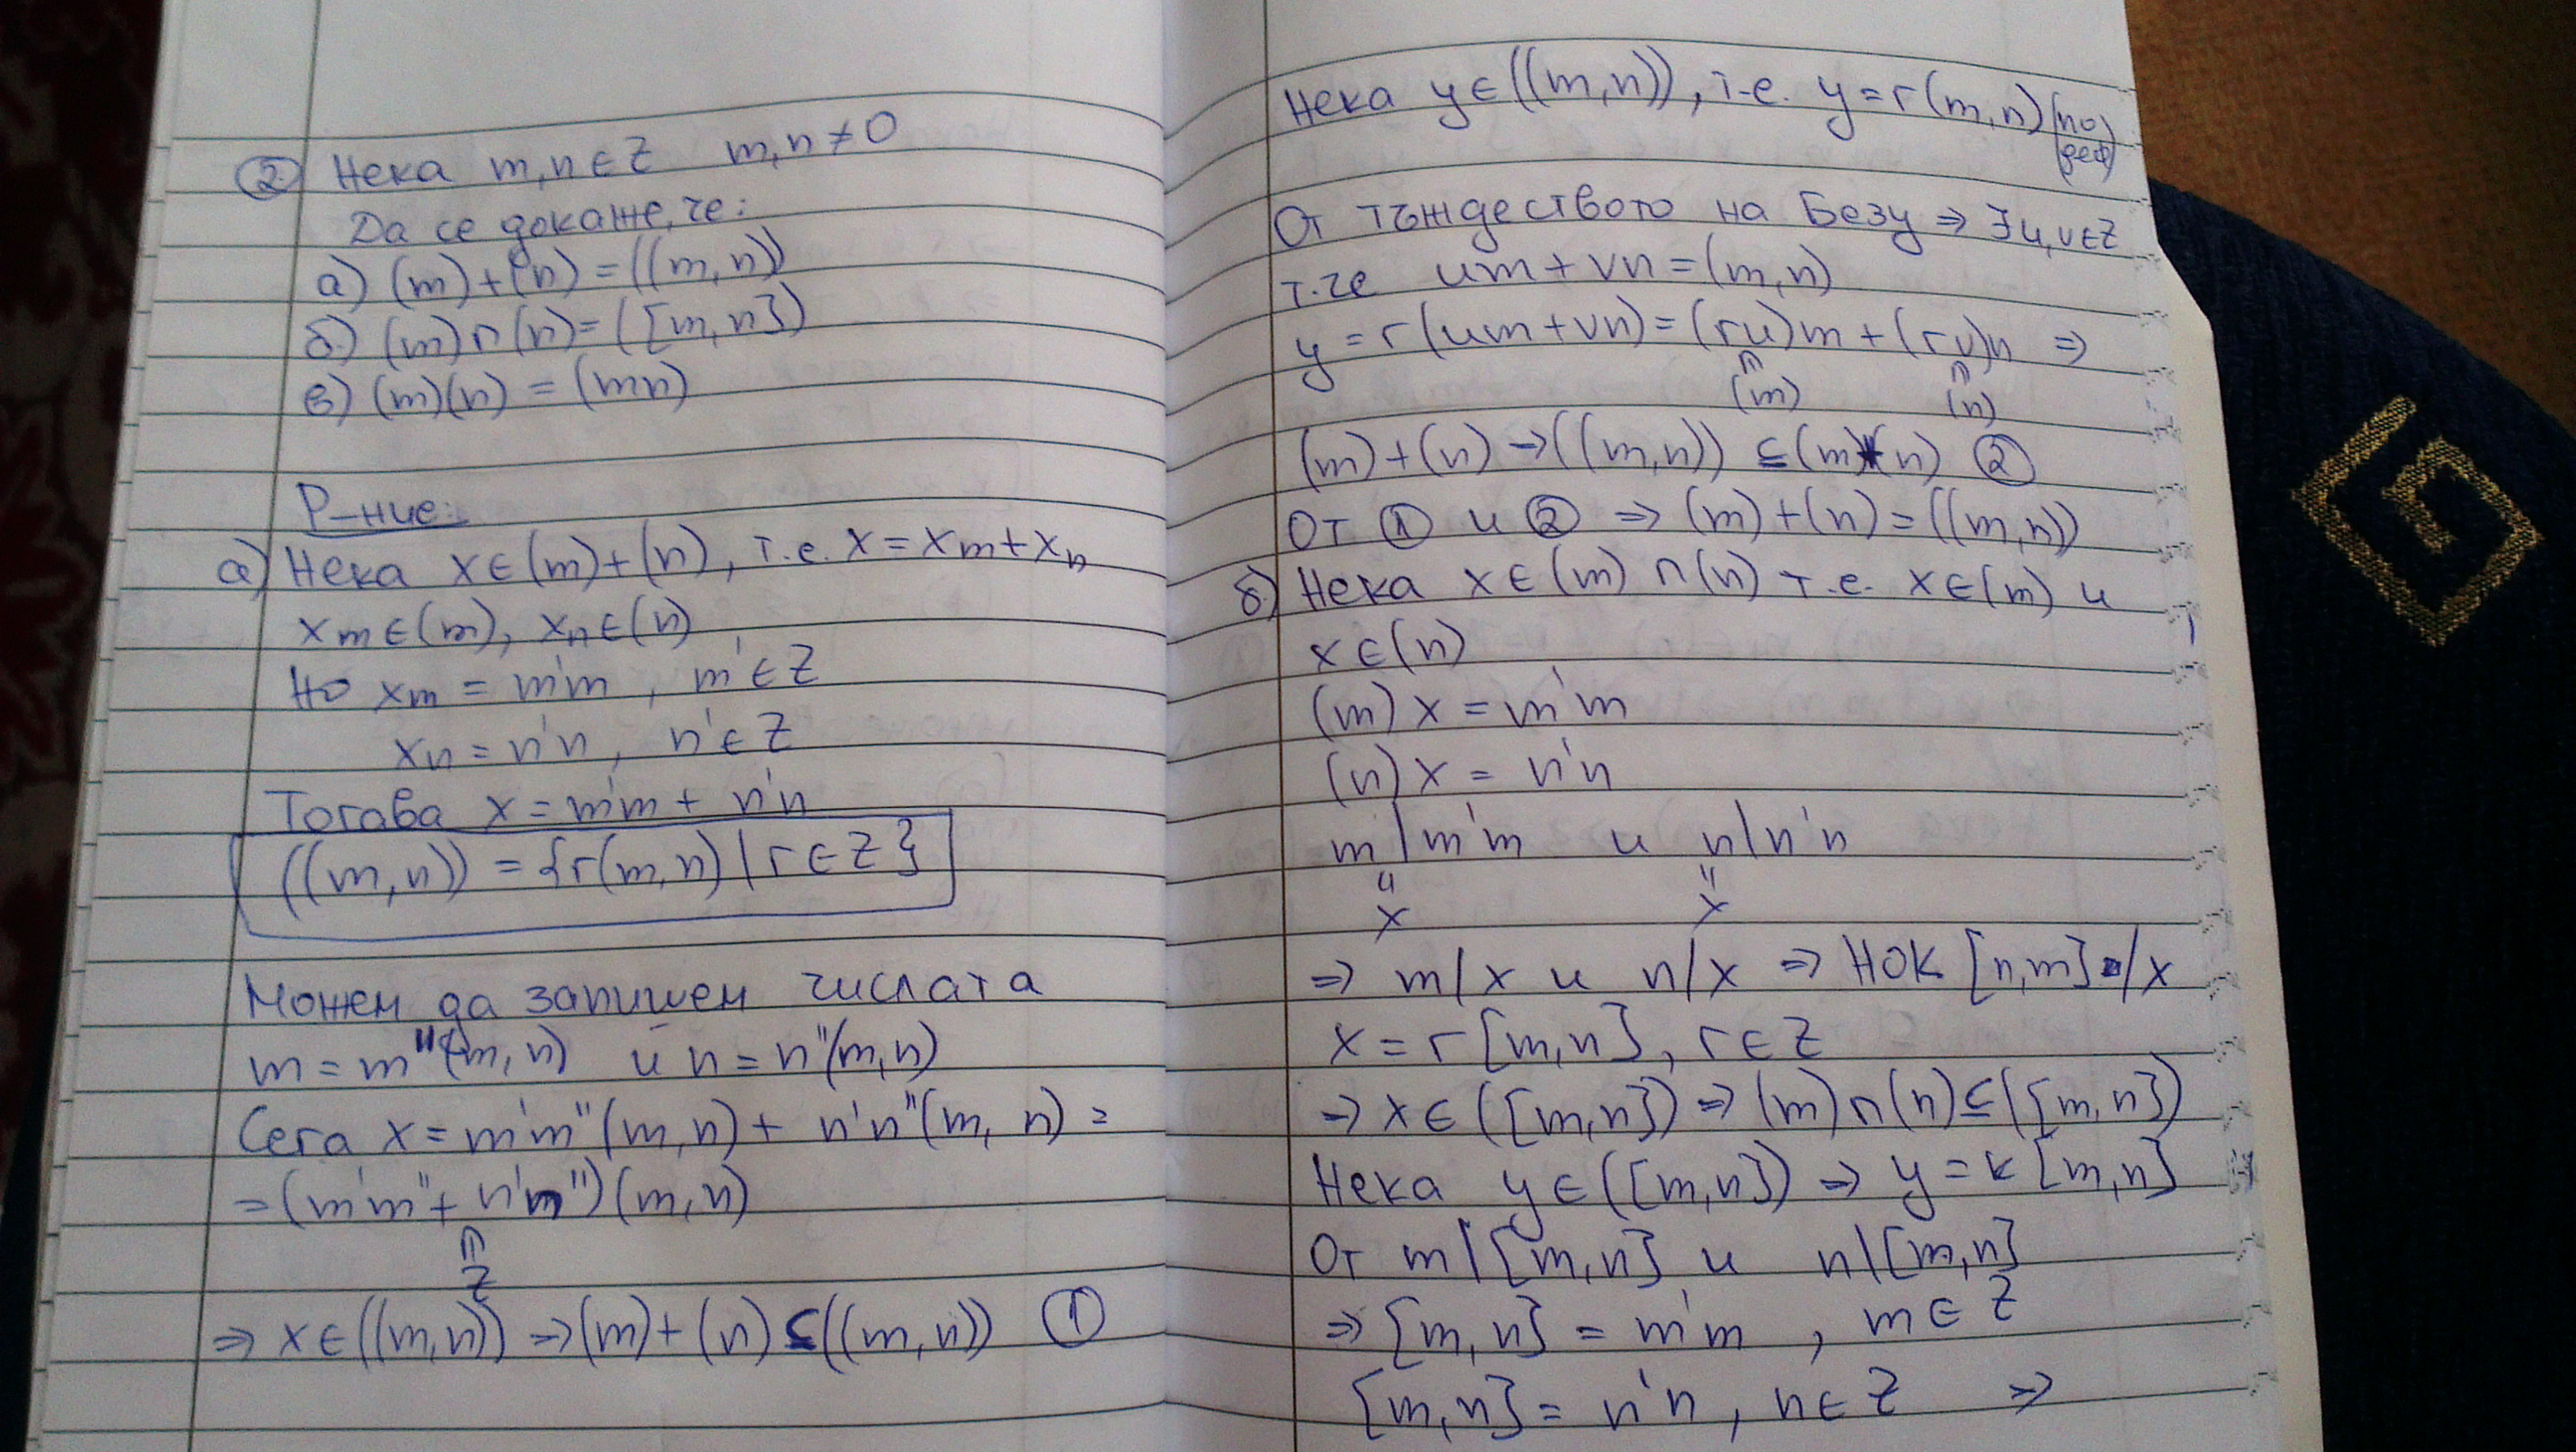 ② Нека m,n ∈ Z m,n ≠ 0
Да се докаже, че:
а) (m)+(n) = ((m,n))
б) (m)∩(n) = ([m,n])
в) (m)(n) = (mn)
Р-ние:
а) Нека x∈(m)+(n), т.е. x = xm + xn
xm∈(m), xn∈(n)
Но xm = m'm, m'∈Z
xn = n'n, n'∈Z
Тогава x = m'm + n'n
((m,n)) = {r(m,n) | r∈Z}
Можем да запишем числата
m = m''(m,n) и n = n''(m,n)
Сега x = m'm''(m,n) + n'n''(m,n) =
= (m'm'' + n'n'')(m,n)
∈
Z
⇒ x∈((m,n)) ⇒ (m)+(n) ⊆ ((m,n)) ①
Нека y∈((m,n)), т.е. y = r(m,n) (по деф)
От тъждеството на Безу ⇒ ∃u,v∈Z
т.че um + vn = (m,n)
y = r(um+vn) = (ru)m + (rv)n ⇒
∈ ∈
(m) (n)
(m)+(n) → ((m,n)) ⊆ (m)+(n) ②
От ① и ② ⇒ (m)+(n) = ((m,n))
б) Нека x∈(m)∩(n) т.е. x∈(m) и
x∈(n)
(m) x = m'm
(n) x = n'n
m | m'm и n | n'n
= =
x x
⇒ m/x и n/x ⇒ НОК [n,m] /x
x = r[m,n], r∈Z
⇒ x∈([m,n]) ⇒ (m)∩(n) ⊆ ([m,n])
Нека y∈([m,n]) ⇒ y = k[m,n]
От m | [m,n] и n | [m,n]
⇒ [m,n] = m'm, m∈Z
[m,n] = n'n, n∈Z ⇒